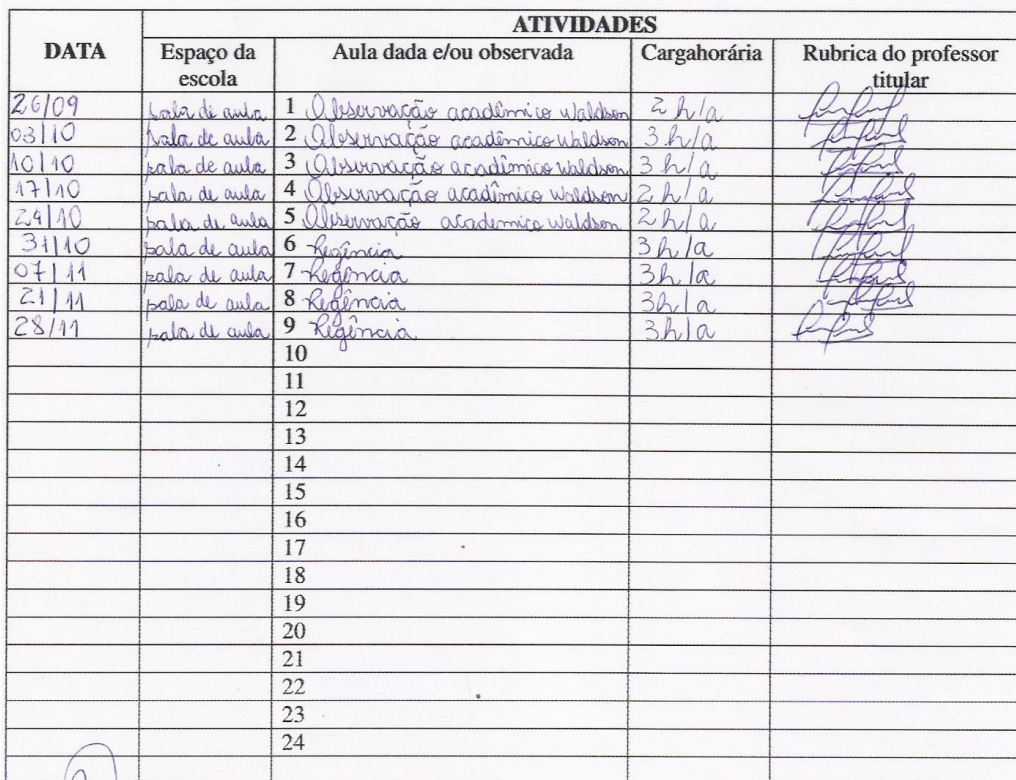 ATIVIDADES
DATA Espaço da escola Aula dada e/ou observada Cargahorária Rubrica do professor titular
26/09 sala de aula 1 Observação acadêmico Waldson 2 h/a
03/10 sala de aula 2 Observação acadêmico Waldson 3 h/a
10/10 sala de aula 3 Observação acadêmico Waldson 3 h/a
17/10 sala de aula 4 Observação acadêmico Waldson 2 h/a
24/10 sala de aula 5 Observação academico Waldson 2 h/a
31/10 sala de aula 6 Regência 3h/a
07/11 sala de aula 7 Regência 3h/a
21/11 sala de aula 8 Regência 3h/a
28/11 sala de aula 9 Regência 3h/a
10
11
12
13
14
15
16
17
18
19
20
21
22
23
24